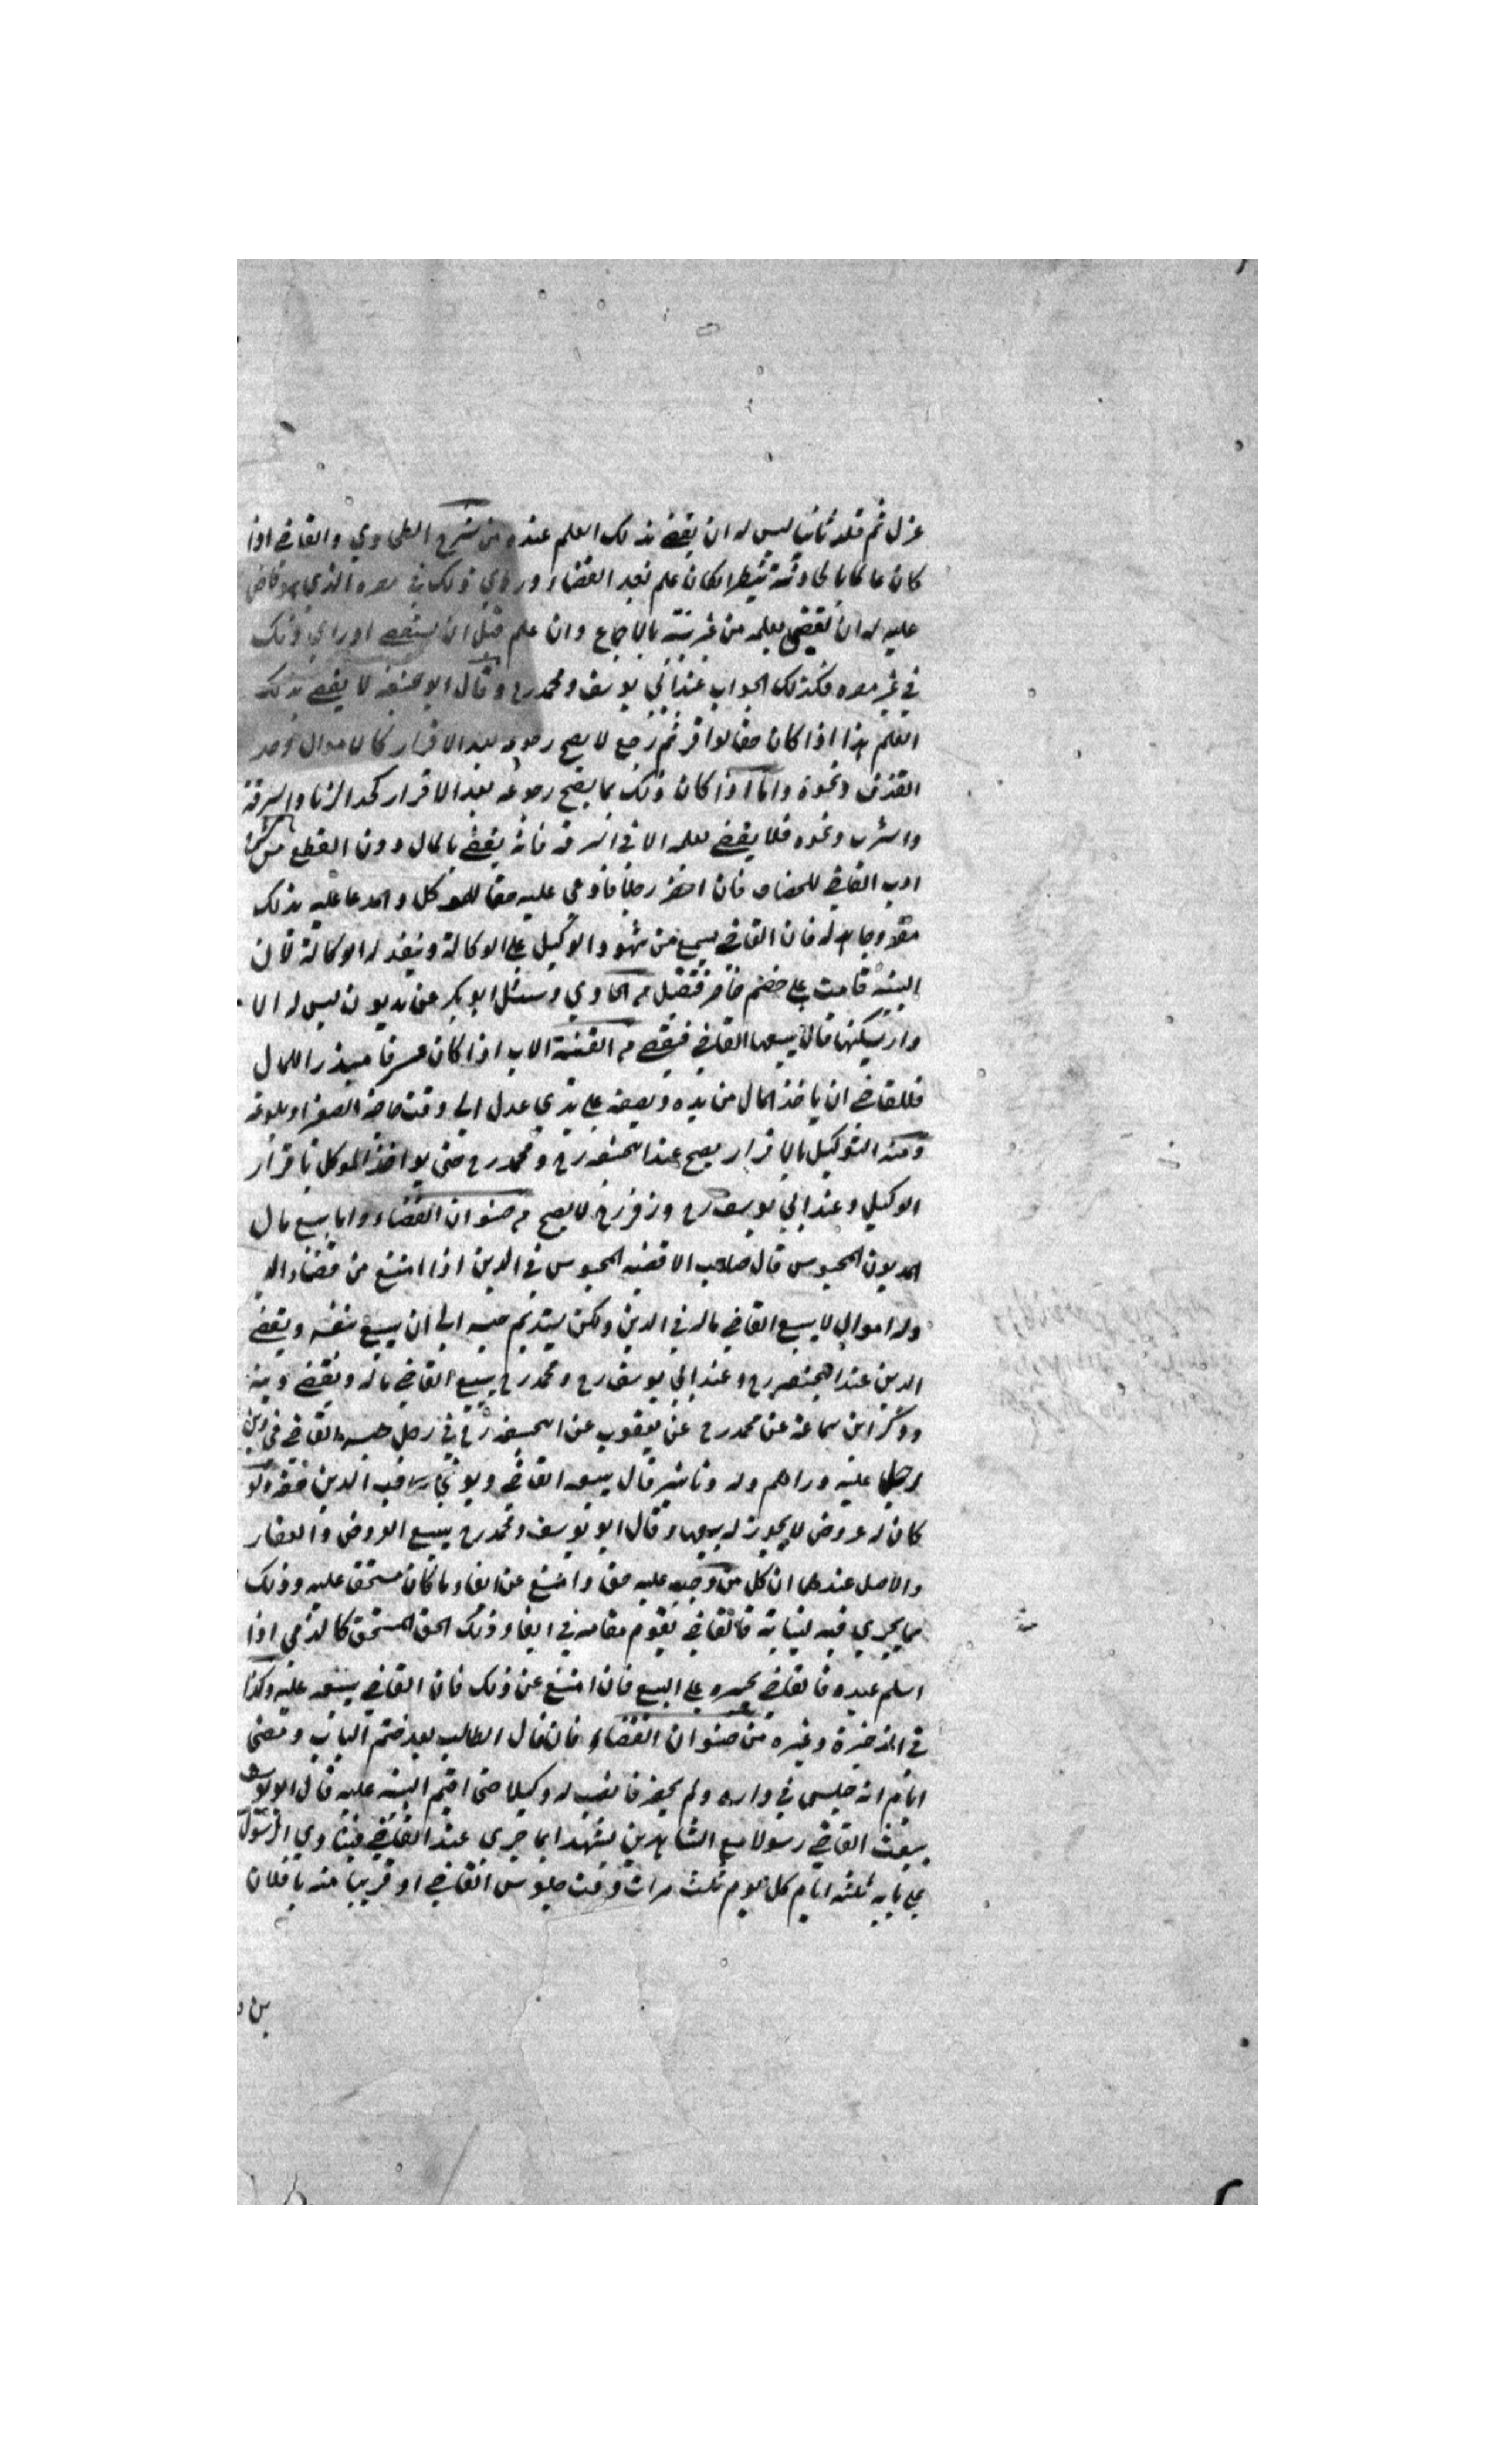 عزل ثم قلد ثانيا ليس له ان يقضي بذلك العلم عنده من شرح الطحاوي والقاضي اذا
كان عالما بالحادثة ان كان علم بعد القضاء وراي ذلك في مصره الذي هو قاض
عليه له ان يقضي بعلمه من غير بينة بالاجماع وان علم قبل ان يستقضي او راي ذلك
في غير مصره فكذلك الجواب عند ابي يوسف ومحمد رح وقال ابو حنيفه لا يقضي بذلك
العلم هذا اذا كان حقا لو اقر ثم رجع لا يصح رجوعه بعد الاقرار كالاموال وحد
القذف ونحوه واما اذا كان ذلك مما يصح رجوعه بعد الاقرار كحد الزنا والسرقة
والشرب ونحوه فلا يقضي بعلمه الا في السرقه فانه يقضي بالمال دون القطع من شرح
ادب القاضي للخصاف فان احضر رجلا فادعي عليه حقا للموكل والمدعا عليه بذلك
مقر وجاحد له فان القاضي يسمع من شهود الوكيل علي الوكالة وينفذ له الوكالة لان
البينة قامت علي خصم حاضر فتقبل م الحاوي وسئل ابو بكر عن مديون ليس له الا
دار يسكنها قال يبيعها القاضي فيقضي م القنية الاب اذا كان مسرفا مبذرا للمال
فللقاضي ان ياخذ المال من يده ويضعه علي يدي عدل الي وقت حاجة الصغير او بلوغه
ومنه التوكيل بالاقرار يصح عند ابحنيفه رح ومحمد رح حتي يواخذ الموكل باقرار
الوكيل وعند ابي يوسف رح وزفر رح لا يصح م صنوان القضاء واما بيع مال
المديون المحبوس قال صاحب الاقضيه المحبوس في الدين اذا امتنع من قضاء الد
وله اموال لا يبيع القاضي ماله في الدين ولكن يستديم حبسه الي ان يبيع بنفسه ويقضي
الدين عند ابحنيفه رح وعند ابي يوسف رح ومحمد رح يبيع القاضي ماله ويقضي دينه
وذكر ابن سماعة عن محمد رح عن يعقوب عن ابحنيفه رح في رجل حبسه القاضي في دين
رجل عليه دراهم وله دنانير قال يبيعه القاضي ويوفي رب الدين حقه ولو
كان له عروض لا يجوز له بيعها وقال ابو يوسف ومحمد رح يبيع العروض والعقار
والاصل عندهما ان كل من وجب عليه حق وامتنع عن ايفاء ما كان مستحق عليه وذلك
مما يجري فيه لنيابة فالقاضي يقوم مقامه في ايفاء ذلك الحق المستحق كالذمي اذا
اسلم عبده فالقاضي يجبره علي البيع فان امتنع عن ذلك فان القاضي يبيعه عليه وكذا
في الذخيرة وغيره من صنوان القضاء فان قال الطالب بعد ختم الباب ومضي
ايام انه جلس في داره ولم يحضر فانصب له وكيلا حتي اقيم البينه عليه قال ابو يوسف
يبعث القاضي رسولا مع الشاهدين يشهدا بما جري عند القاضي فينادي الرسول
علي بابه ثلثه ايام كل يوم ثلث مرات وقت جلوس القاضي او قريبا منه يا فلان
بن